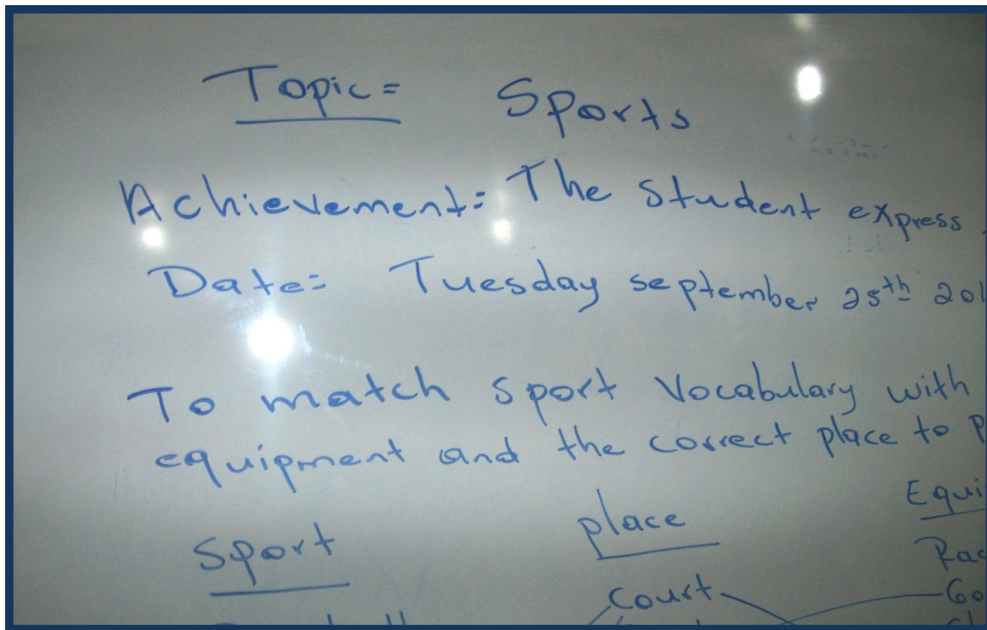 Topic= Sports
Achievement: The Student express
Date= Tuesday september 25th 201
To match sport Vocabulary with
equipment and the correct place to P
Sport place Equi
Court Rac
Go